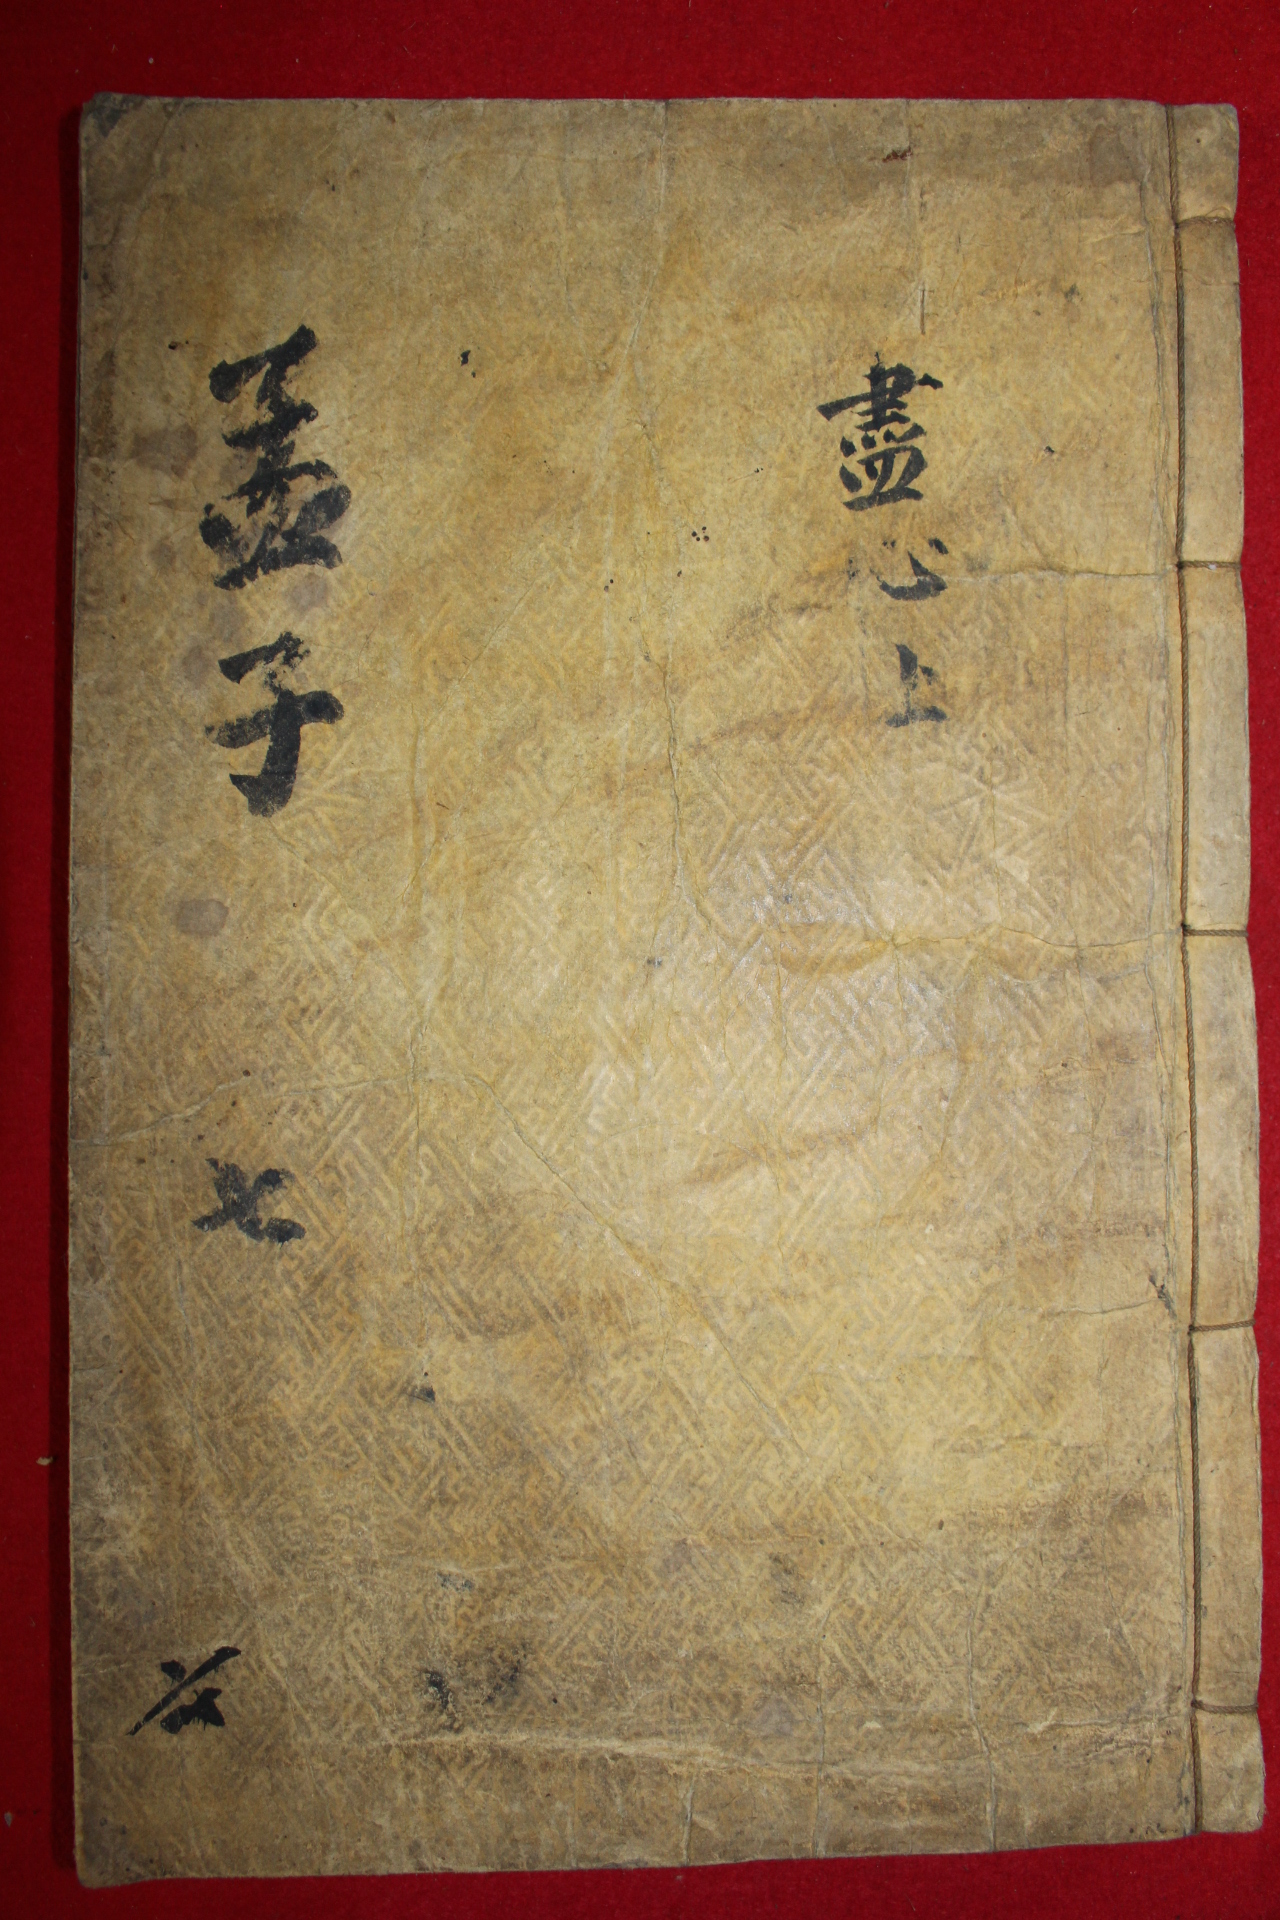 盡心上
孟子 七